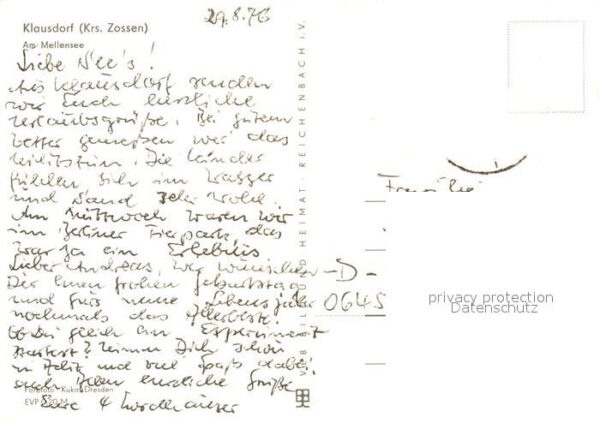 Klausdorf (Krs. Zossen)
Am Mellensee
29.8.76
Liebe Nee's!
Aus Klausdorf senden
wir Euch herzliche
Urlaubsgrüße. Bei gutem
Wetter genießen wir das
Nichtstun. Die Kinder
fühlen sich im Wasser
und Sand sehr wohl.
Am Mittwoch waren wir
im Berliner Tierpark, das
war ja ein Erlebnis
Lieber Andreas, wir wünschen
Dir einen frohen Geburtstag
und fürs neue Lebensjahr
nochmals das Allerbeste.
Ob Du gleich ein Experiment
startest? Nimm Dich schön
in Acht und viel Spaß dabei.
Euch allen herzliche Grüße
Eure 4 Nordhäuser
Farbfoto: Kukat, Dresden
EVP 0,20 M
VEB BILD UND HEIMAT REICHENBACH i.V.
Familie
-D-
0645
privacy protection
Datenschutz